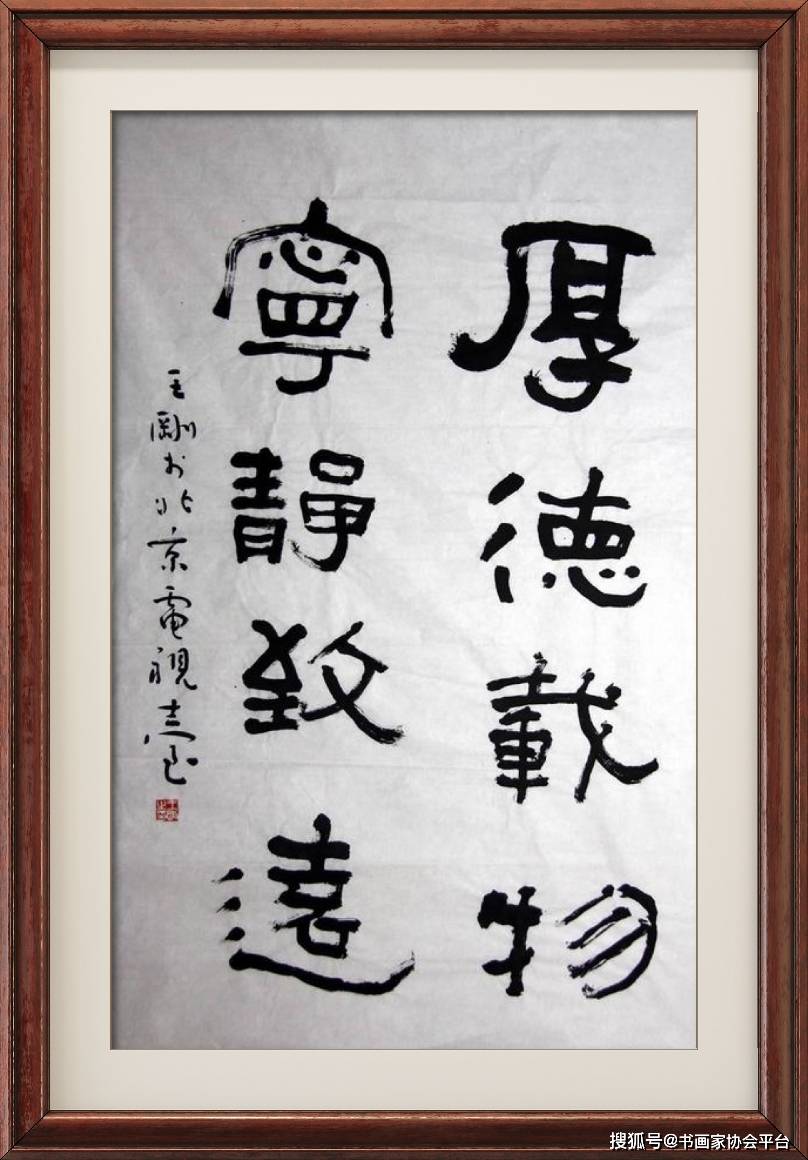 厚德載物
寧靜致遠
王剛於北京電視臺
搜狐号@书画家协会平台